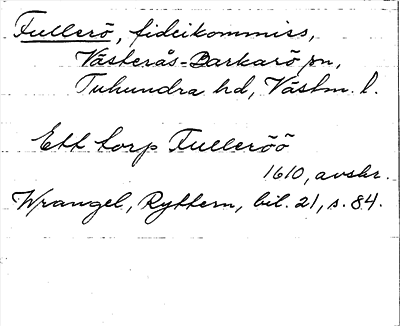 Fullerö, fideikommiss,
Västerås-Barkarö sn,
Tuhundra hd, Västm. l.
Ett torp Fulleröö
1610, avskr.
Wrangel, Ryttern, bil. 21, s. 84.